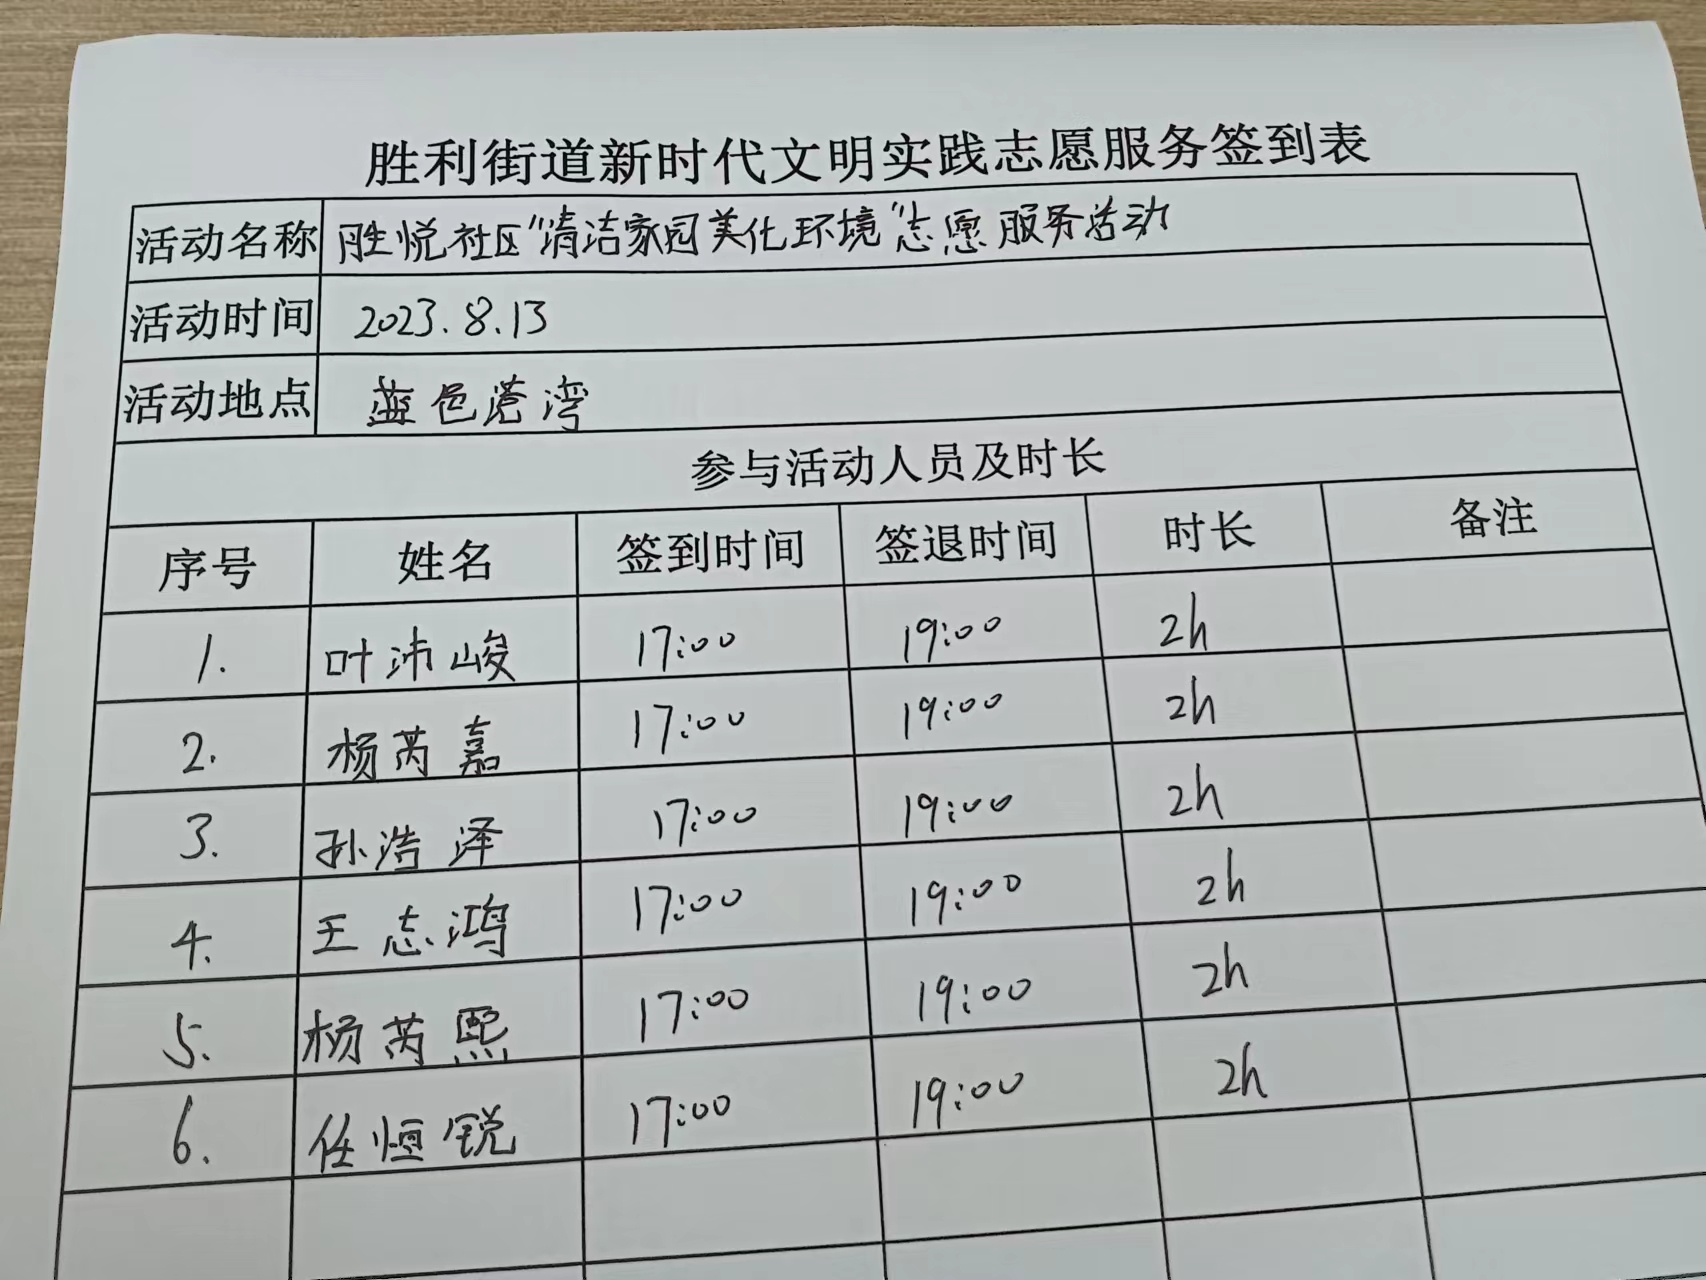 胜利街道新时代文明实践志愿服务签到表
活动名称 胜悦社区“清洁家园美化环境”志愿服务活动
活动时间 2023.8.13
活动地点 蓝色港湾
参与活动人员及时长
序号 姓名 签到时间 签退时间 时长 备注
1. 叶沛峻 17:00 19:00 2h
2. 杨芮嘉 17:00 19:00 2h
3. 孙浩泽 17:00 19:00 2h
4. 王志鸿 17:00 19:00 2h
5. 杨芮熙 17:00 19:00 2h
6. 任恒锐 17:00 19:00 2h